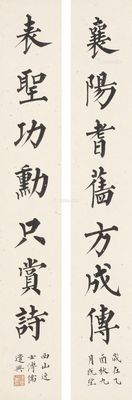 襄陽耆舊方成傳
歲在乙
酉秋九
月既望
表聖功勳只賞詩
西山逸
士溥儒
遣興